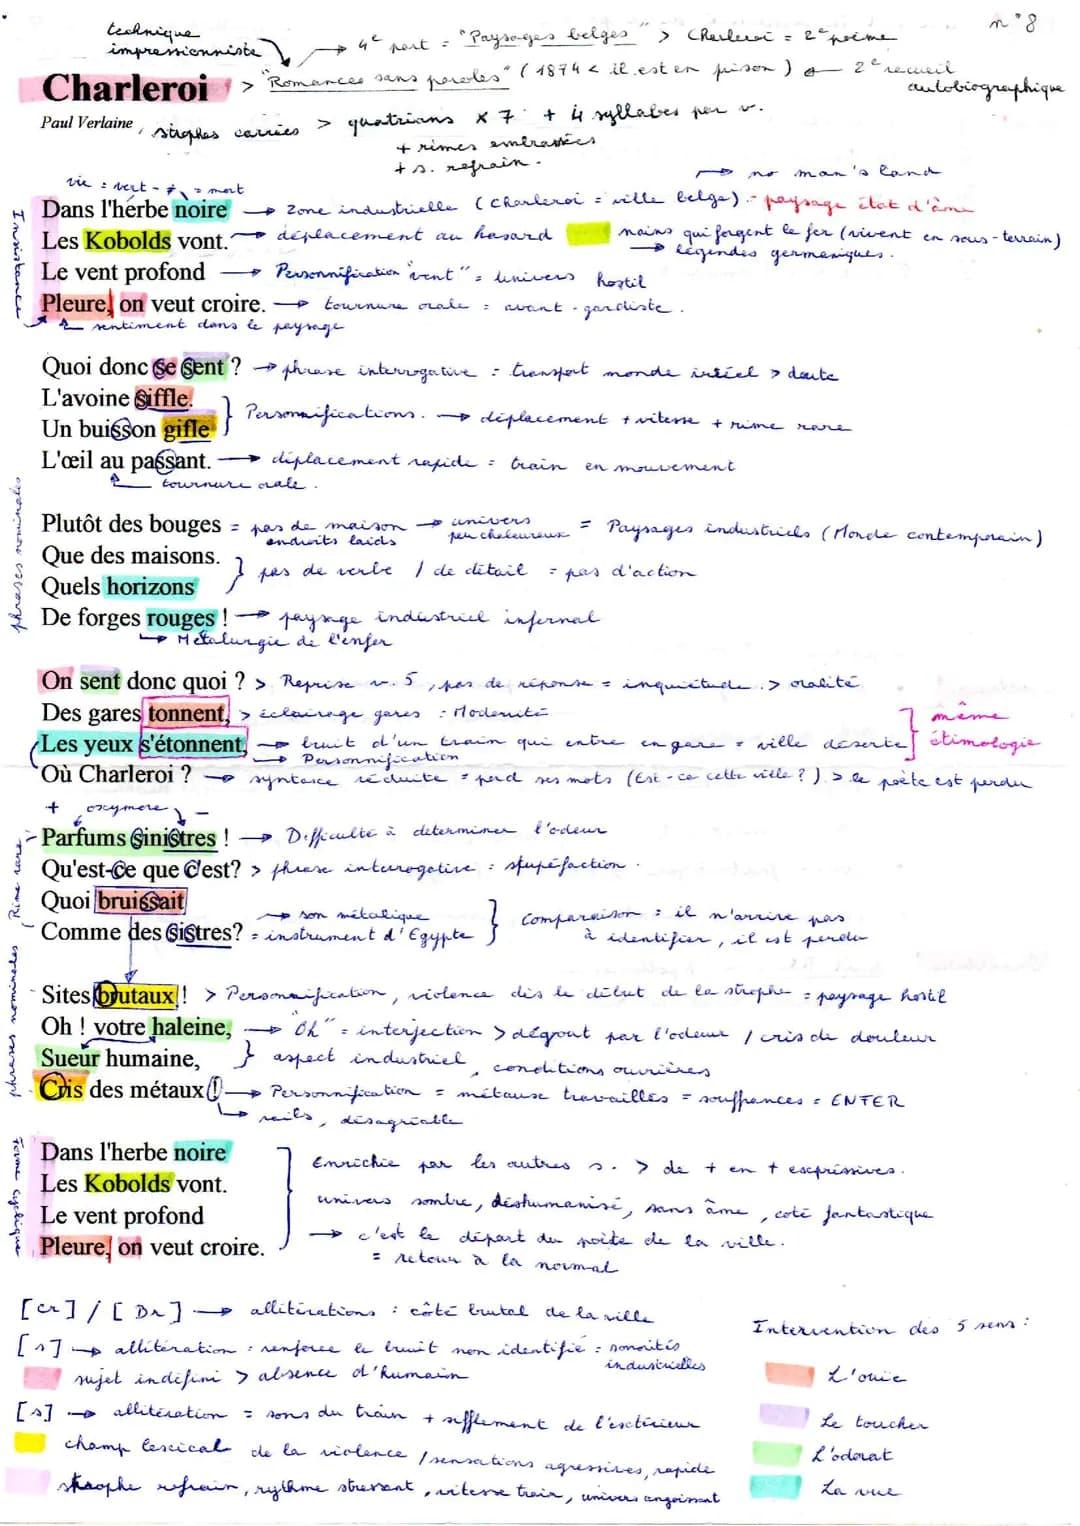 n°8
technique
impressionniste
→ 4e part = "Paysages belges" > Charleroi = 2e poème
Charleroi > "Romances sans paroles" (1874 < il est en prison) 2e recueil
autobiographique
Paul Verlaine, strophes carrées > quatrians x 7 + 4 syllabes par v.
+ rimes embrassées
+ s. refrain.
→ no man's land
vie = vert - ≠ = mort
Insistance
Dans l'herbe noire → zone industrielle (Charleroi = ville belge) - paysage état d'âme
Les Kobolds vont. → déplacement au hasard nains qui forgent le fer (vivent en sous-terrain)
→ légendes germaniques.
Le vent profond → Personnification "vent" = univers hostil
Pleure, on veut croire. → tournure orale = avant-gardiste.
sentiment dans le paysage
Quoi donc se sent ? → phrase interrogative = transport monde irréel > doute
L'avoine siffle.
Un buisson gifle } Personnifications. → déplacement + vitesse + rime rare
L'œil au passant. → déplacement rapide = train en mouvement
tournure orale.
phrases nominales
Plutôt des bouges = pas de maison → univers peu chaleureux = Paysages industriels (Monde contemporain)
endroits laids
Que des maisons.
Quels horizons } pas de verbe / de détail = pas d'action
De forges rouges ! → paysage industriel infernal
→ Métalurgie de l'enfer
On sent donc quoi ? > Reprise v. 5, pas de réponse = inquiétude. > oralité
Des gares tonnent, > éclairage gares : Modernité
Les yeux s'étonnent, → bruit d'un train qui entre en gare = ville déserte ] même étimologie
→ Personnification
Où Charleroi ? → syntaxe réduite = perd ses mots (Est-ce cette ville ?) > le poète est perdu
+ oxymore -
Parfums sinistres ! → Difficulté à déterminer l'odeur
Rime rare
Qu'est-ce que c'est? > phrase interrogative = stupéfaction.
Quoi bruissait
→ son métalique } Comparaison = il n'arrive pas
Comme des sistres? = instrument d'Egypte à identifier, il est perdu
phrases nominales
Sites brutaux ! > Personnification, violence dès le début de la strophe = paysage hostil
Oh ! votre haleine, → "Oh" = interjection > dégout par l'odeur / cris de douleur
Sueur humaine, } aspect industriel, conditions ouvrières
Cris des métaux ! → Personnification = métaux travaillés = souffrances = ENFER
→ rails, désagréable
Forme cyclique
Dans l'herbe noire
Les Kobolds vont.
Le vent profond
Pleure, on veut croire.
Enrichie par les autres s. > de + en + expressives.
univers sombre, déshumanisé, sans âme, coté fantastique
→ c'est le départ du poète de la ville.
= retour à la normal
[cr] / [Br] → allitérations : côté brutal de la ville
[s] → allitération : renforce le bruit non identifié = sonorités
industrielles
sujet indéfini > absence d'humain
[s] → allitération = sons du train + sifflement de l'extérieur
champ lexical de la violence / sensations agressives, rapide
strophe refrain, rythme stressant, vitesse train, univers angoissant
Intervention des 5 sens :
L'ouie
Le toucher
L'odorat
La vue